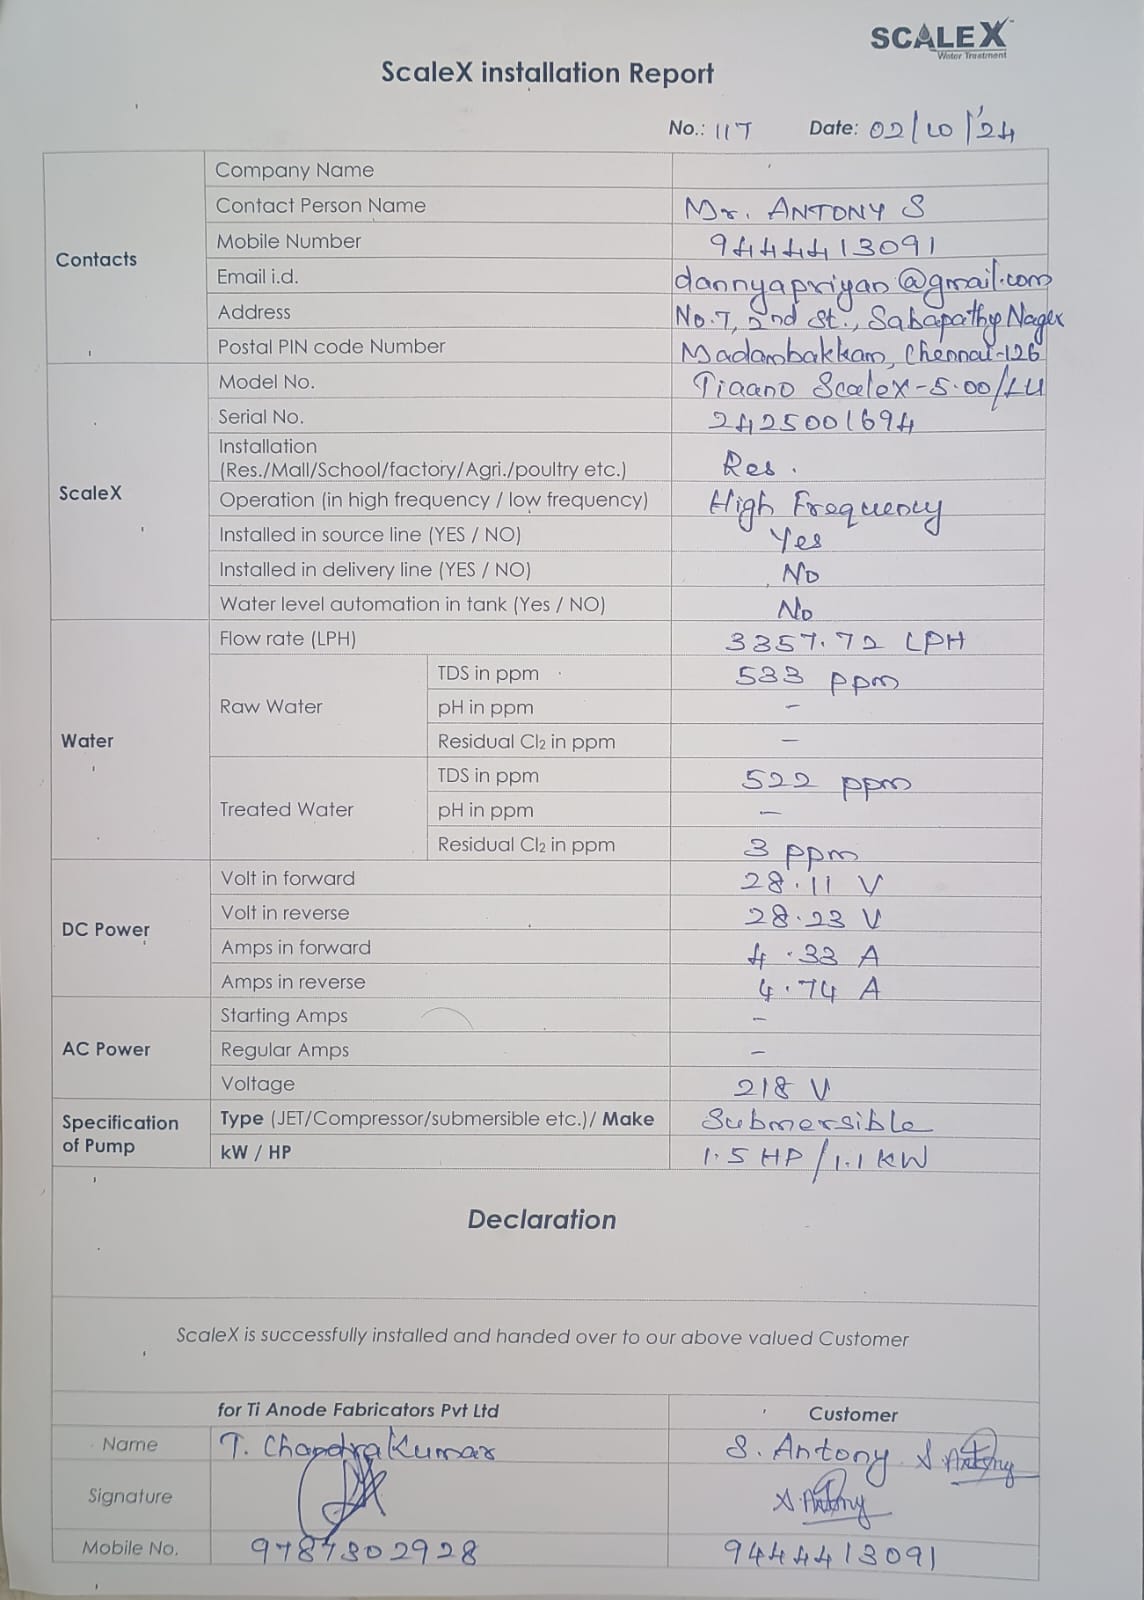 SCALEX
Water Treatment
ScaleX installation Report
No.: 117 Date: 02/10/'24
Contacts
Company Name
Contact Person Name Mr. ANTONY S
Mobile Number 9444413091
Email i.d. dannyapriyan@gmail.com
Address No.7, 2nd St., Sabapathy Nager
Postal PIN code Number Madambakkam, Chennai-126
ScaleX
Model No. Tiaano ScaleX-5.00/LU
Serial No. 2425001694
Installation
(Res./Mall/School/factory/Agri./poultry etc.) Res.
Operation (in high frequency / low frequency) High Frequency
Installed in source line (YES / NO) Yes
Installed in delivery line (YES / NO) No
Water level automation in tank (Yes / NO) No
Water
Flow rate (LPH) 3357.72 LPH
Raw Water
TDS in ppm 533 ppm
pH in ppm -
Residual Cl2 in ppm -
Treated Water
TDS in ppm 522 ppm
pH in ppm -
Residual Cl2 in ppm 3 ppm
DC Power
Volt in forward 28.11 V
Volt in reverse 28.23 V
Amps in forward 4.33 A
Amps in reverse 4.74 A
AC Power
Starting Amps -
Regular Amps -
Voltage 218 V
Specification
of Pump
Type (JET/Compressor/submersible etc.)/ Make Submersible
kW / HP 1.5 HP/1.1 KW
Declaration
ScaleX is successfully installed and handed over to our above valued Customer
for Ti Anode Fabricators Pvt Ltd Customer
Name T. Chandra Kumar S. Antony S. Antony
Signature S. Antony
Mobile No. 9787302928 9444413091